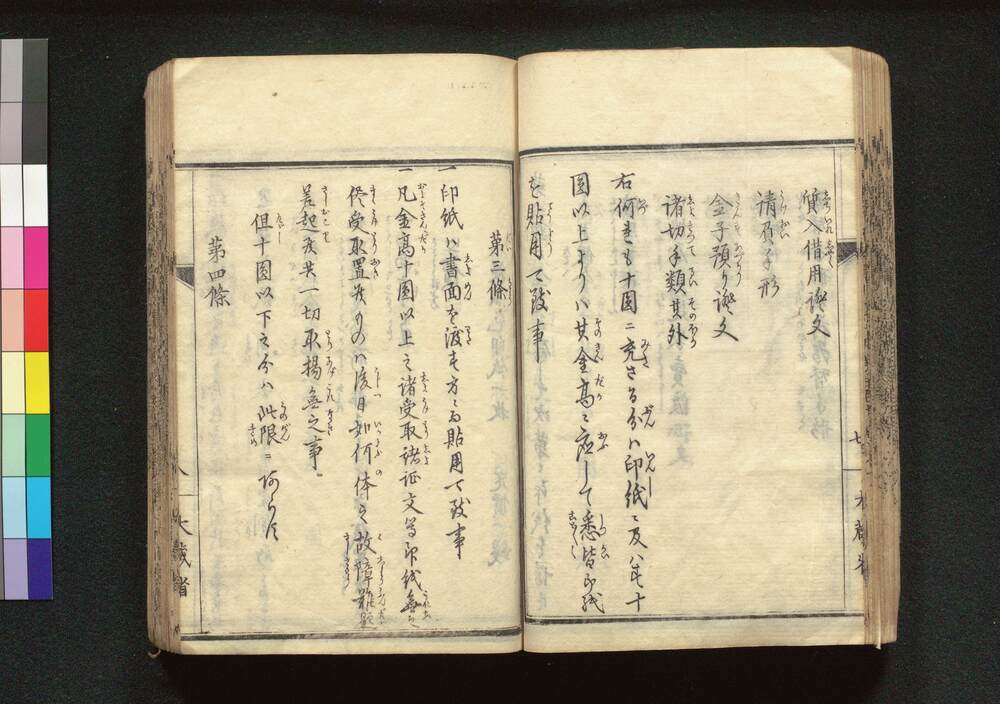 質入借用證文
請取手形
金子預り證文
諸切手類其外
右何れも十圓ニ充さる分ハ印紙ニ及ハす十
圓以上よりハ其金高ニ応して悉皆印紙
を貼用可致事
第三條
一印紙ハ書面を渡す方ニ而貼用可致事
一凡金高十圓以上之諸受取諸証文等印紙無之
侭受取置候ものハ後日如何体之故障難題
差起候共一切取揚無之事
但十圓以下之分ハ此限ニあらす
第四條